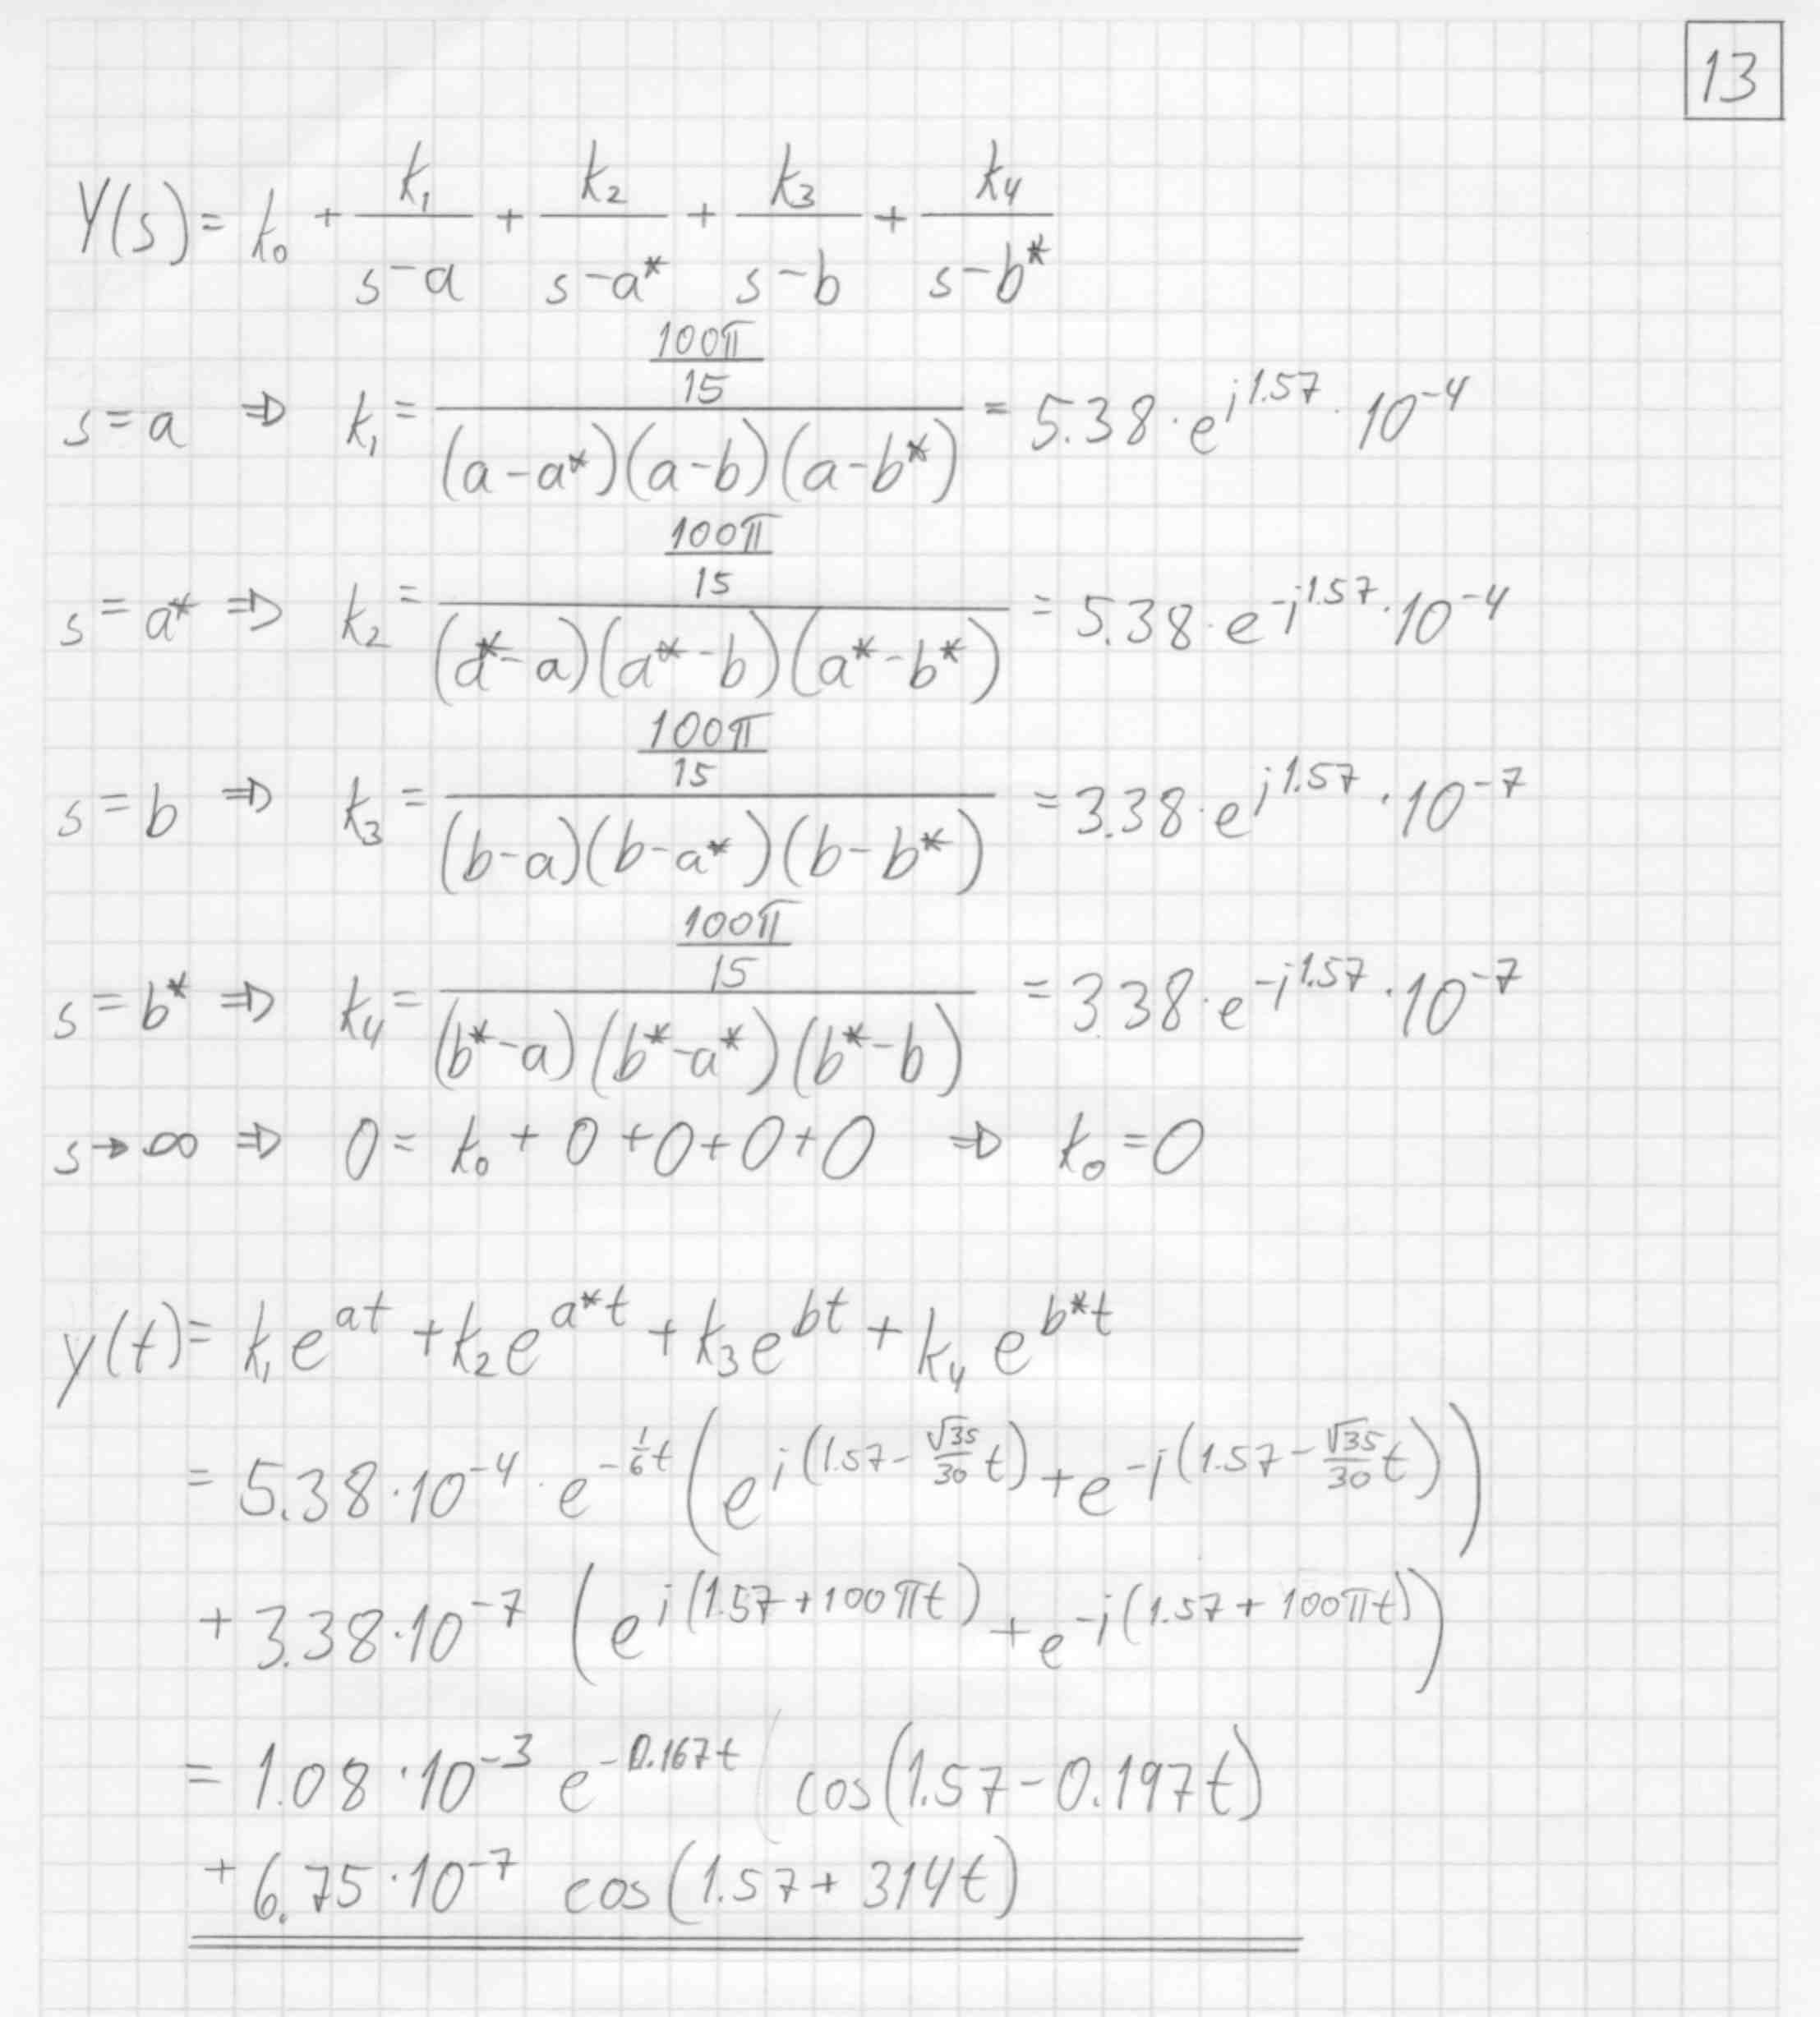 13
Y(s) = k₀ + k₁/(s-a) + k₂/(s-a*) + k₃/(s-b) + k₄/(s-b*)
s=a ⇒ k₁ = (100π/15)/((a-a*)(a-b)(a-b*)) = 5.38·e^(i1.57)·10^(-4)
s=a* ⇒ k₂ = (100π/15)/((a*-a)(a*-b)(a*-b*)) = 5.38·e^(-i1.57)·10^(-4)
s=b ⇒ k₃ = (100π/15)/((b-a)(b-a*)(b-b*)) = 3.38·e^(i1.57)·10^(-7)
s=b* ⇒ k₄ = (100π/15)/((b*-a)(b*-a*)(b*-b)) = 3.38·e^(-i1.57)·10^(-7)
s→∞ ⇒ 0 = k₀ + 0 + 0 + 0 + 0 ⇒ k₀ = 0
y(t) = k₁e^(at) + k₂e^(a*t) + k₃e^(bt) + k₄e^(b*t)
= 5.38·10^(-4)·e^(-1/6 t) (e^(i(1.57-√35/30 t)) + e^(-i(1.57-√35/30 t)))
+ 3.38·10^(-7) (e^(i(1.57+100πt)) + e^(-i(1.57+100πt)))
= 1.08·10^(-3) e^(-0.167t) cos(1.57-0.197t)
+ 6.75·10^(-7) cos(1.57+314t)